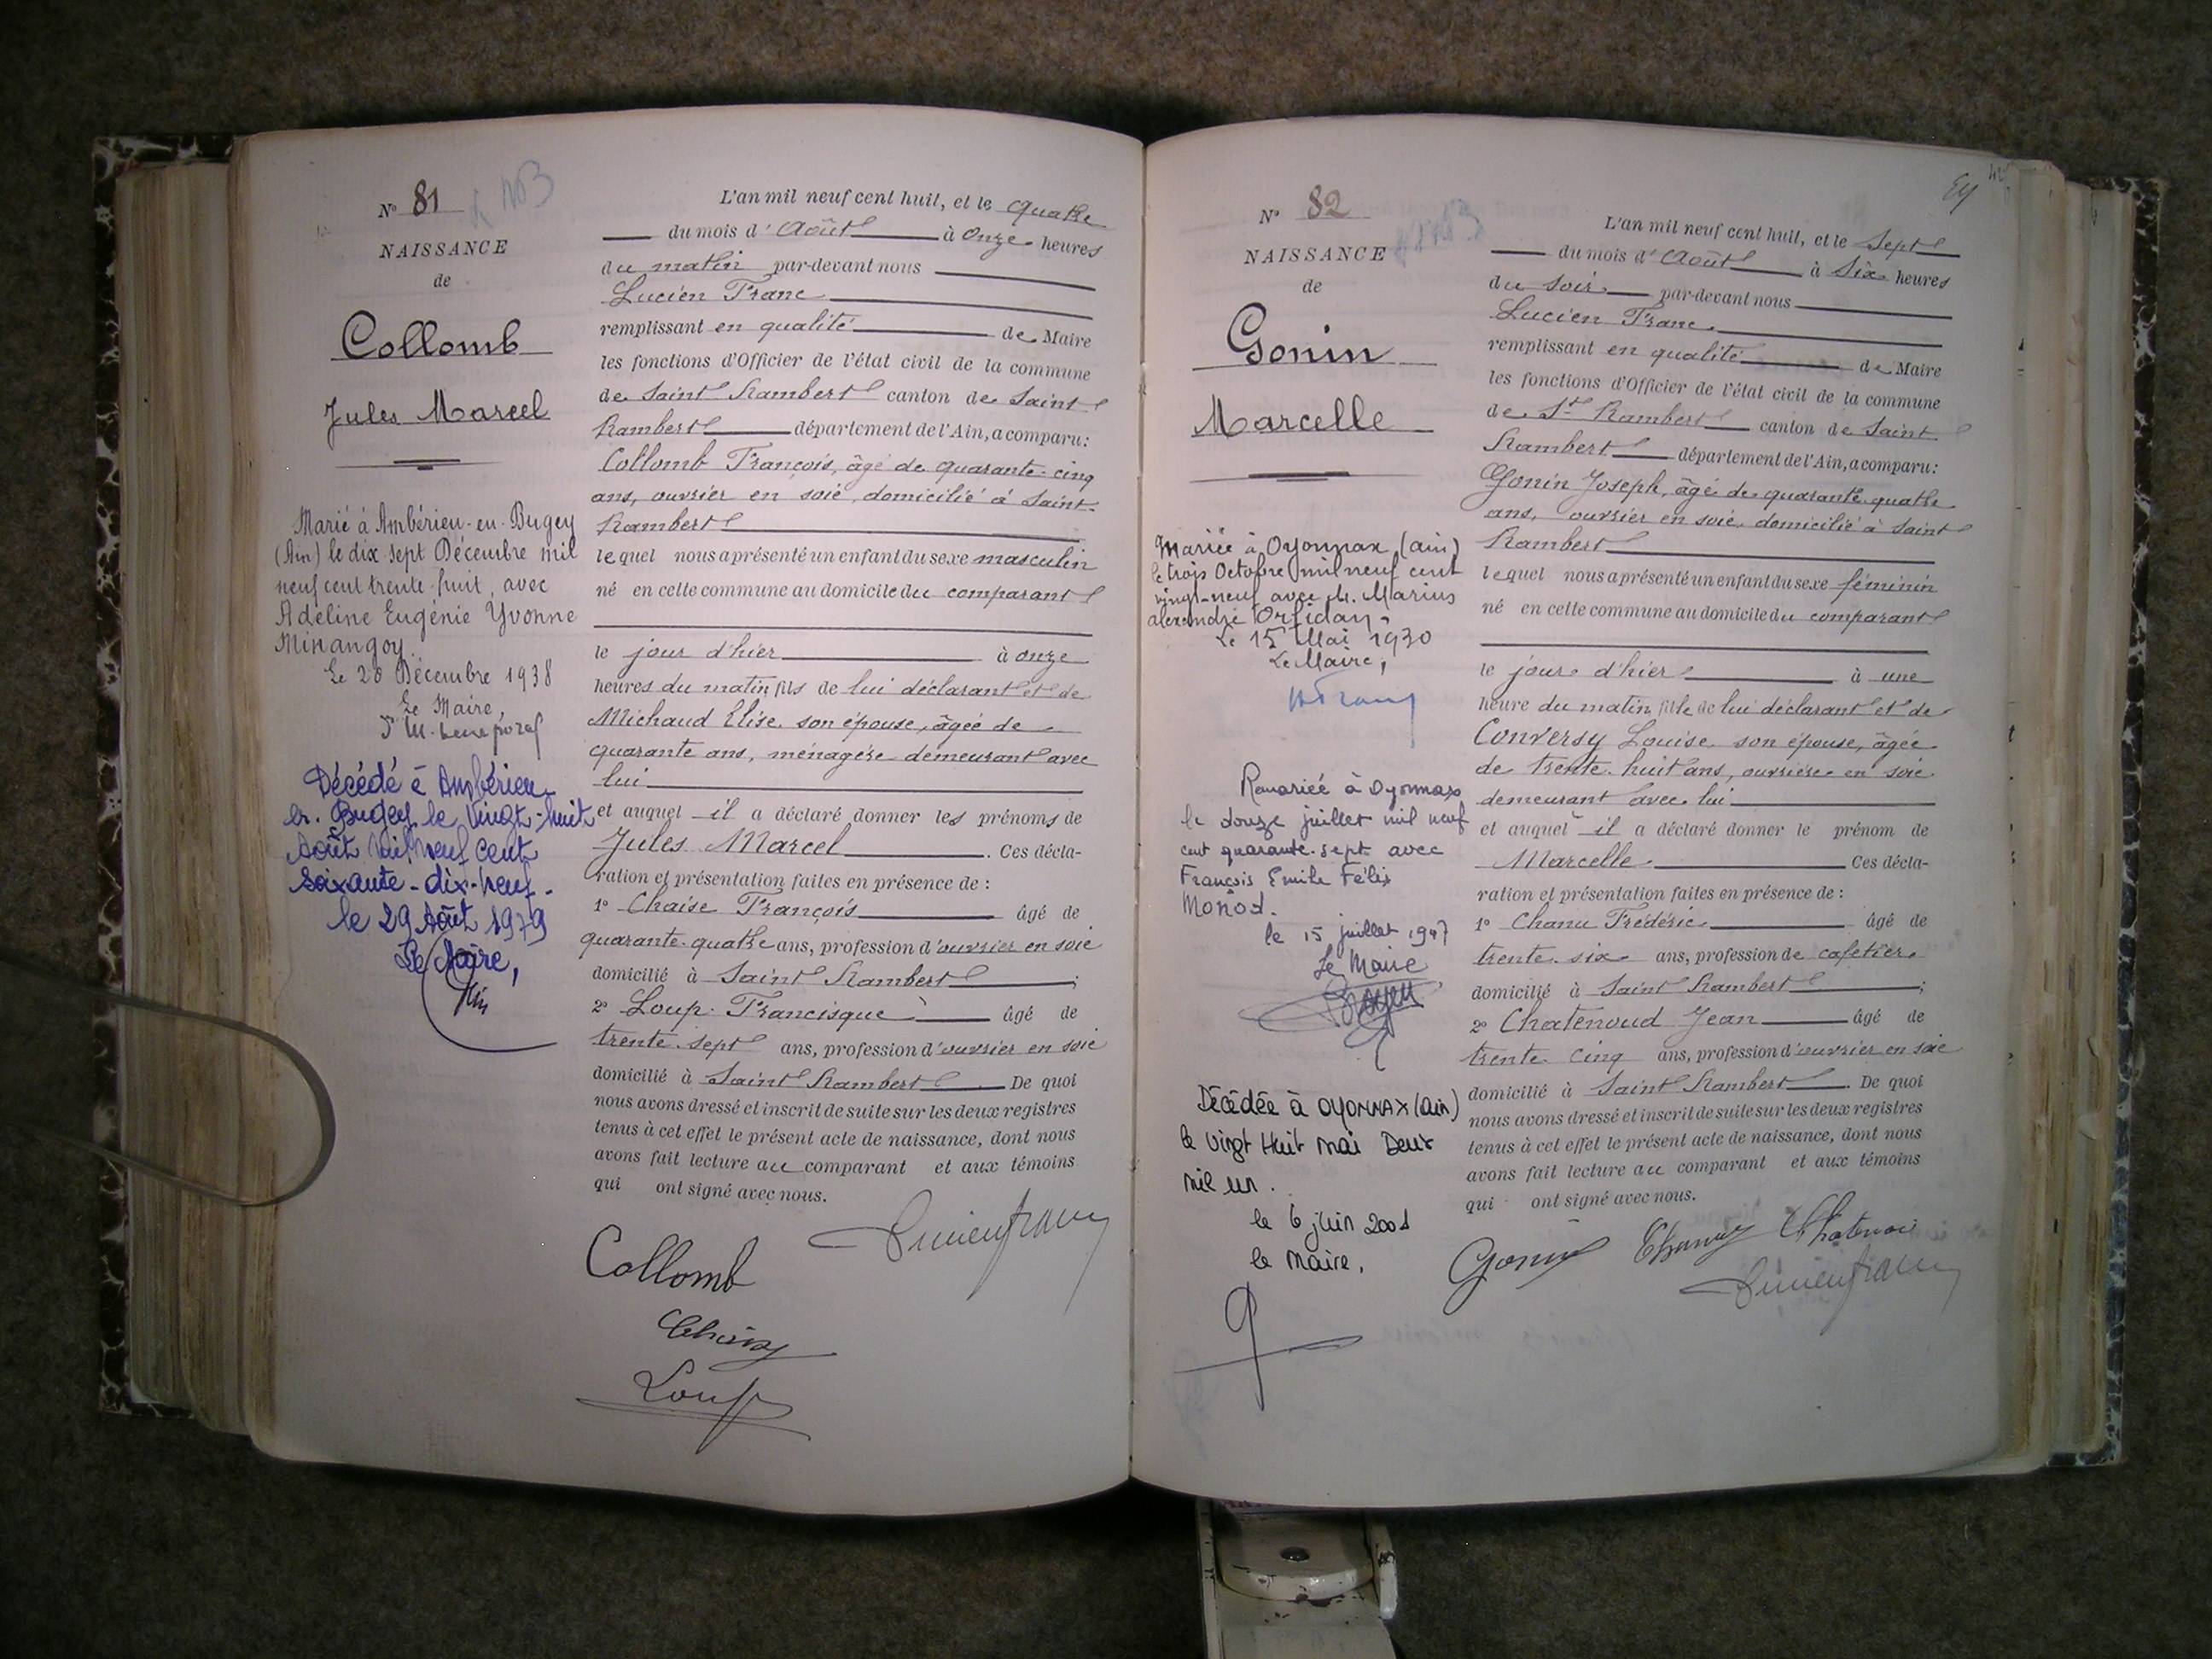 N° 81
NAISSANCE
de
Collomb
Jules Marcel
Marié à Ambérieu-en-Bugey
(Ain) le dix sept Décembre mil
neuf cent trente huit, avec
Adeline Eugénie Yvonne
Minangoy.
Le 20 Décembre 1938
Le Maire,
Décédé à Ambérieu
en Bugey le Vingt-huit
Août mil neuf cent
soixante-dix-neuf.
le 29 Août 1979
Le Maire,
L'an mil neuf cent huit, et le quatre
du mois d'Août à onze heures
du matin par-devant nous
Lucien Franc
remplissant en qualité de Maire
les fonctions d'Officier de l'état civil de la commune
de Saint Rambert canton de Saint-
Rambert département de l'Ain, a comparu:
Collomb François, âgé de quarante-cinq
ans, ouvrier en soie, domicilié à Saint-
Rambert
lequel nous a présenté un enfant du sexe masculin
né en cette commune au domicile du comparant
le jour d'hier à onze
heures du matin, fils de lui déclarant et de
Michaud Elise son épouse, âgée de
quarante ans, ménagère demeurant avec
lui
et auquel il a déclaré donner les prénoms de
Jules Marcel. Ces décla-
ration et présentation faites en présence de :
1° Chaise François âgé de
quarante-quatre ans, profession d'ouvrier en soie
domicilié à Saint Rambert;
2° Loup Francisque âgé de
trente-sept ans, profession d'ouvrier en soie
domicilié à Saint Rambert. De quoi
nous avons dressé et inscrit de suite sur les deux registres
tenus à cet effet le présent acte de naissance, dont nous
avons fait lecture au comparant et aux témoins
qui ont signé avec nous.
Lucien Franc
Collomb
Loup
N° 82
NAISSANCE
de
Gonin
Marcelle
Mariée à Oyonnax (Ain)
le trois Octobre mil neuf cent
vingt-neuf avec M. Marius
Alexandre Orfidan.
Le 15 Mai 1930
Le Maire,
Remariée à Oyonnax
le douze juillet mil neuf
cent quarante-sept avec
François Emile Félix
Monod.
le 15 juillet 1947
Le Maire
Décédée à OYONNAX (Ain)
le Vingt Huit mai Deux
mil un.
le 6 juin 2001
le Maire,
L'an mil neuf cent huit, et le Sept
du mois d'Août à Six heures
du soir par-devant nous
Lucien Franc
remplissant en qualité de Maire
les fonctions d'Officier de l'état civil de la commune
de St Rambert canton de Saint
Rambert département de l'Ain, a comparu:
Gonin Joseph, âgé de quarante-quatre
ans, ouvrier en soie, domicilié à Saint
Rambert
lequel nous a présenté un enfant du sexe féminin
né en cette commune au domicile du comparant
le jour d'hier à une
heure du matin, fille de lui déclarant et de
Conversy Louise son épouse, âgée
de trente-huit ans, ouvrière en soie
demeurant avec lui
et auquel il a déclaré donner le prénom de
Marcelle. Ces décla-
ration et présentation faites en présence de :
1° Chanu Frédéric âgé de
trente-six ans, profession de cafetier
domicilié à Saint Rambert;
2° Chatenoud Jean âgé de
trente-cinq ans, profession d'ouvrier en soie
domicilié à Saint Rambert. De quoi
nous avons dressé et inscrit de suite sur les deux registres
tenus à cet effet le présent acte de naissance, dont nous
avons fait lecture au comparant et aux témoins
qui ont signé avec nous.
Gonin
Lucien Franc